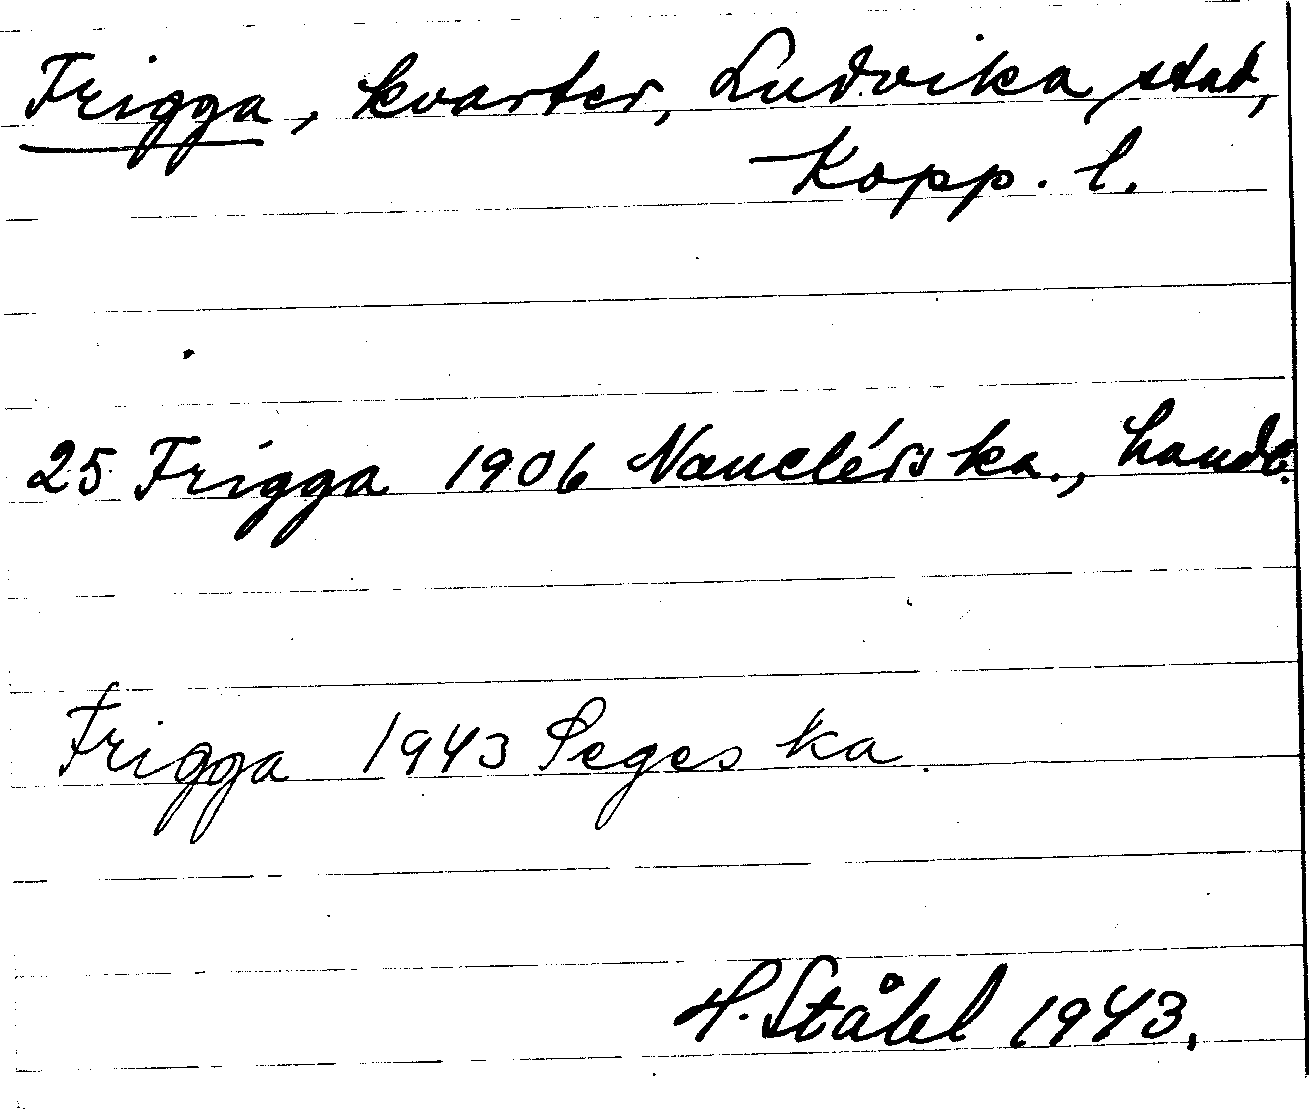 Frigga, kvarter, Ludvika stad,
Kopp. l.
25 Frigga 1906 Nauclérs ka., handl.
Frigga 1943 Seges ka.
H. Ståhl 1943.